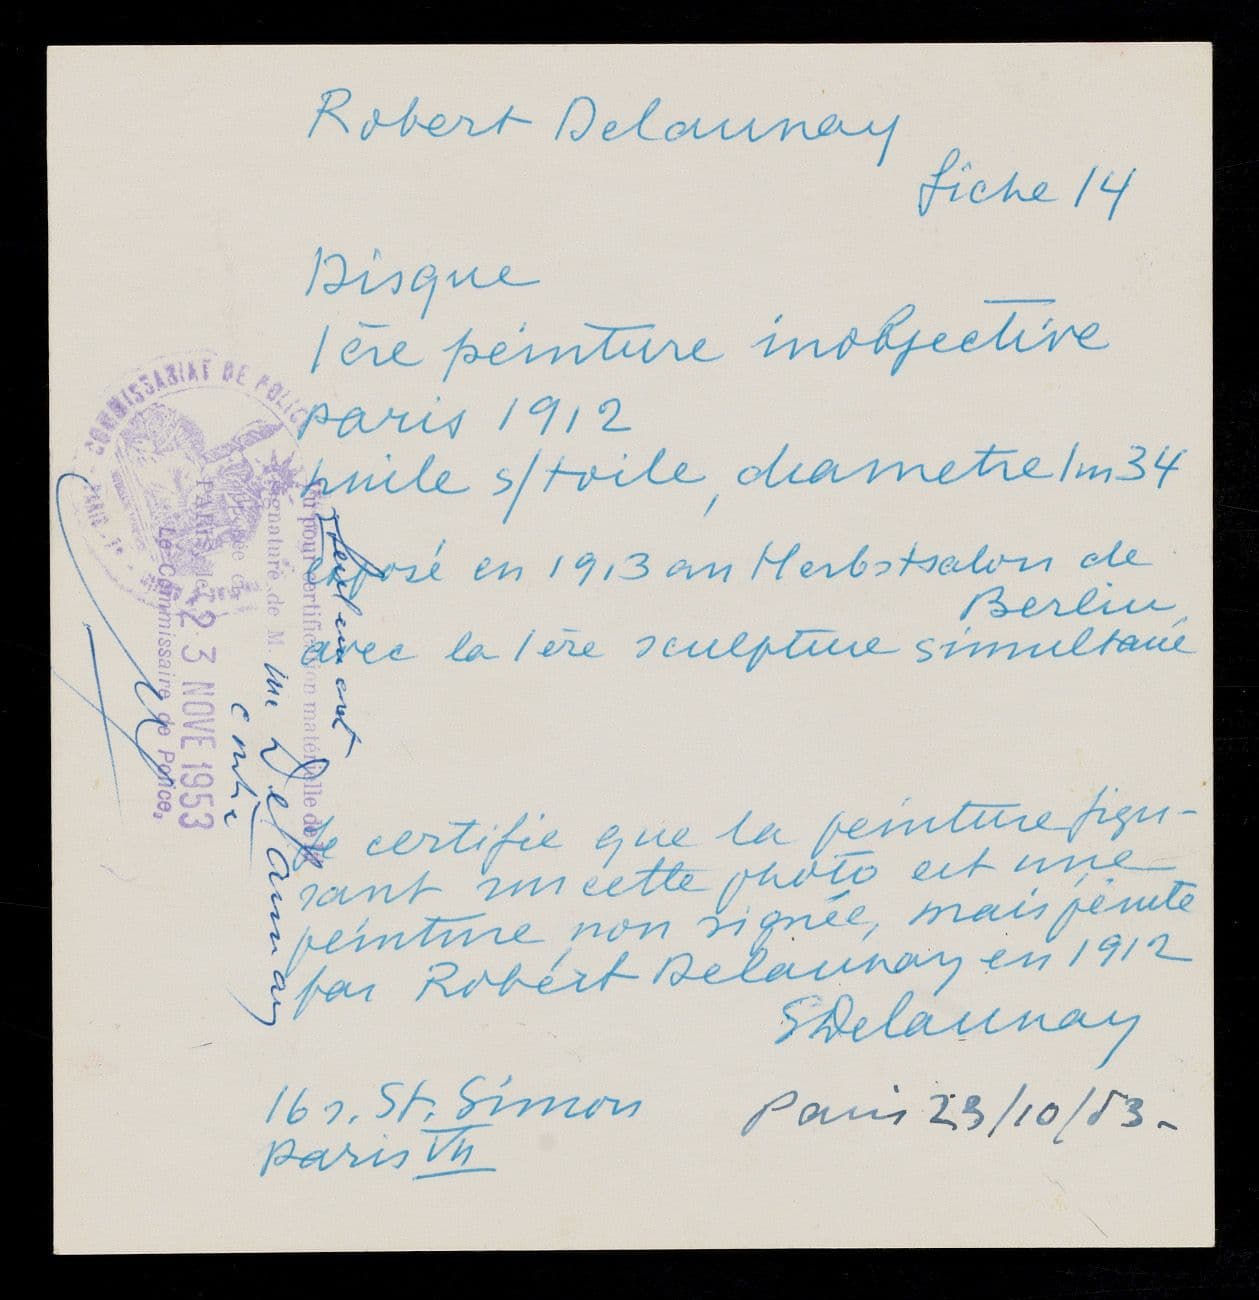 Robert Delaunay
fiche 14
Disque
1ère peinture inobjective
Paris 1912
huile s/toile, diametre 1m34
exposé en 1913 au Herbstsalon de
Berlin
avec la 1ère sculpture simultané
Je certifie que la peinture figu-
rant sur cette photo est une
peinture non signée, mais peinte
par Robert Delaunay en 1912
SDelaunay
16 r. St. Simon
Paris VII
Paris 23/10/53-
COMMISSARIAT DE POLICE
PARIS - 7e
Vu pour certification matérielle de la
seulement
signature de M. me Delaunay
apposée ci-
contre
PARIS, le 23 NOVE 1953
Le Commissaire de Police,